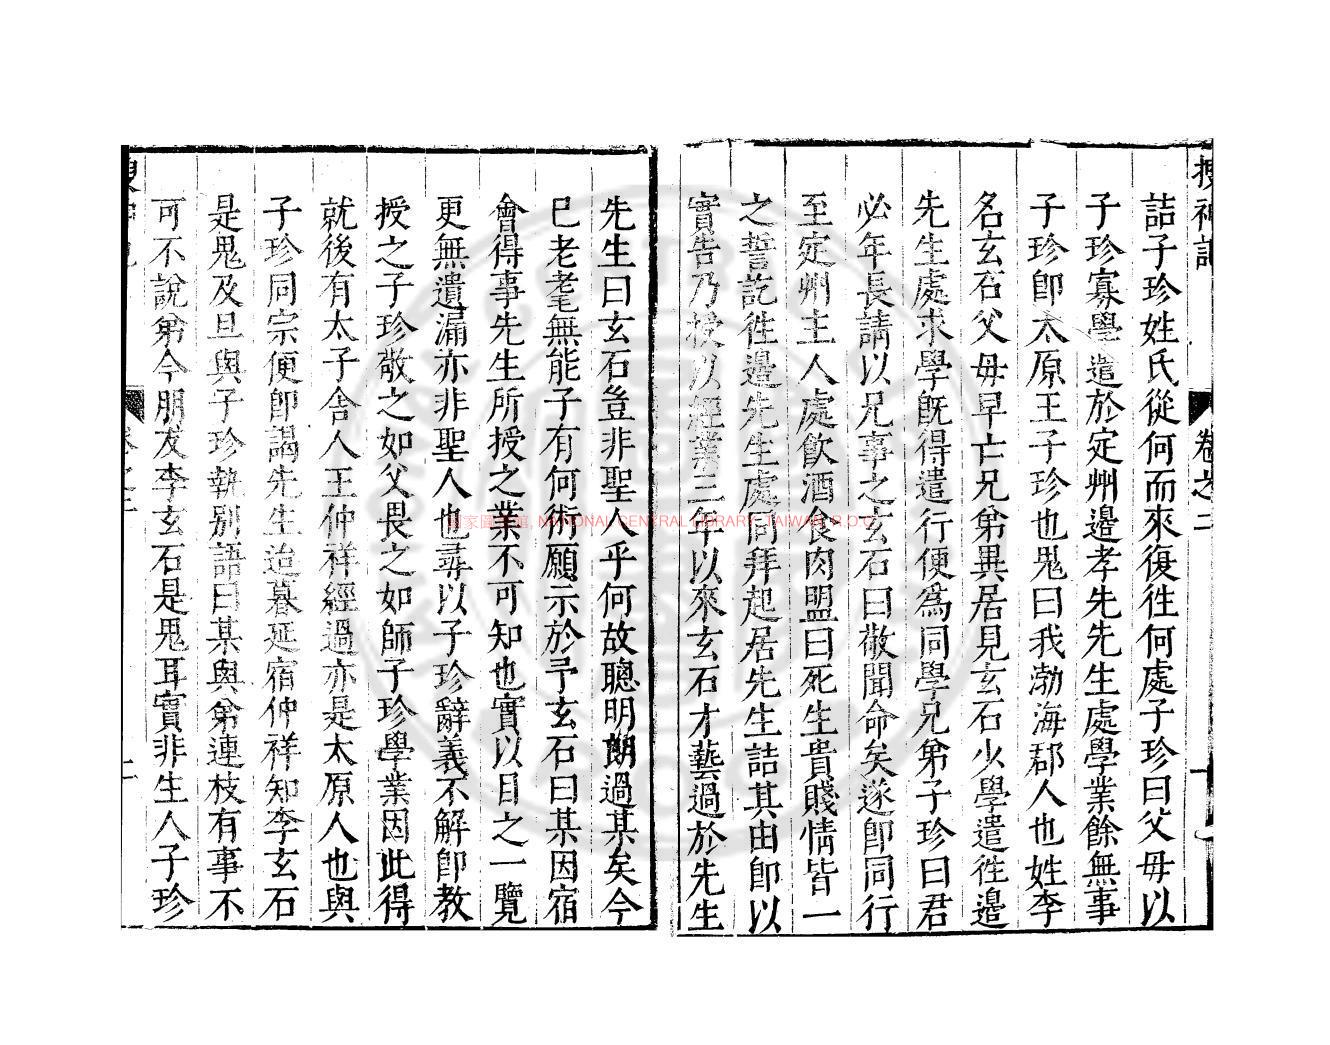 搜神記
卷之二
十
詰子珍姓氏從何而來復徃何處子珍曰父毋以
子珍寡學遣於定州邊孝先先生處學業餘無事
子珍卽太原王子珍也鬼曰我渤海郡人也姓李
名玄石父毋早亡兄弟異居見玄石少學遣徃邊
先生處求學旣得遣行便爲同學兄弟子珍曰君
必年長請以兄事之玄石曰敬聞命矣遂卽同行
至定州主人處飲酒食肉盟曰死生貴賤情皆一
之誓訖徃邊先生處同拜起居先生詰其由卽以
實告乃授以經業三年以來玄石才藝過於先生
先生曰玄石豈非聖人乎何故聰明朗過某矣今
巳老耄無能子有何術願示於予玄石曰某因宿
會得事先生所授之業不可知也實以目之一覽
更無遺漏亦非聖人也尋以子珍辭義不解卽教
授之子珍敬之如父畏之如師子珍學業因此得
就後有太子舍人王仲祥經過亦是太原人也與
子珍同宗便卽謁先生迨暮延宿仲祥知李玄石
是鬼及旦與子珍執別語曰某與弟連枝有事不
可不說弟今朋友李玄石是鬼耳實非生人子珍
國家圖書館, NATIONAL CENTRAL LIBRARY, TAIWAN, R.O.C